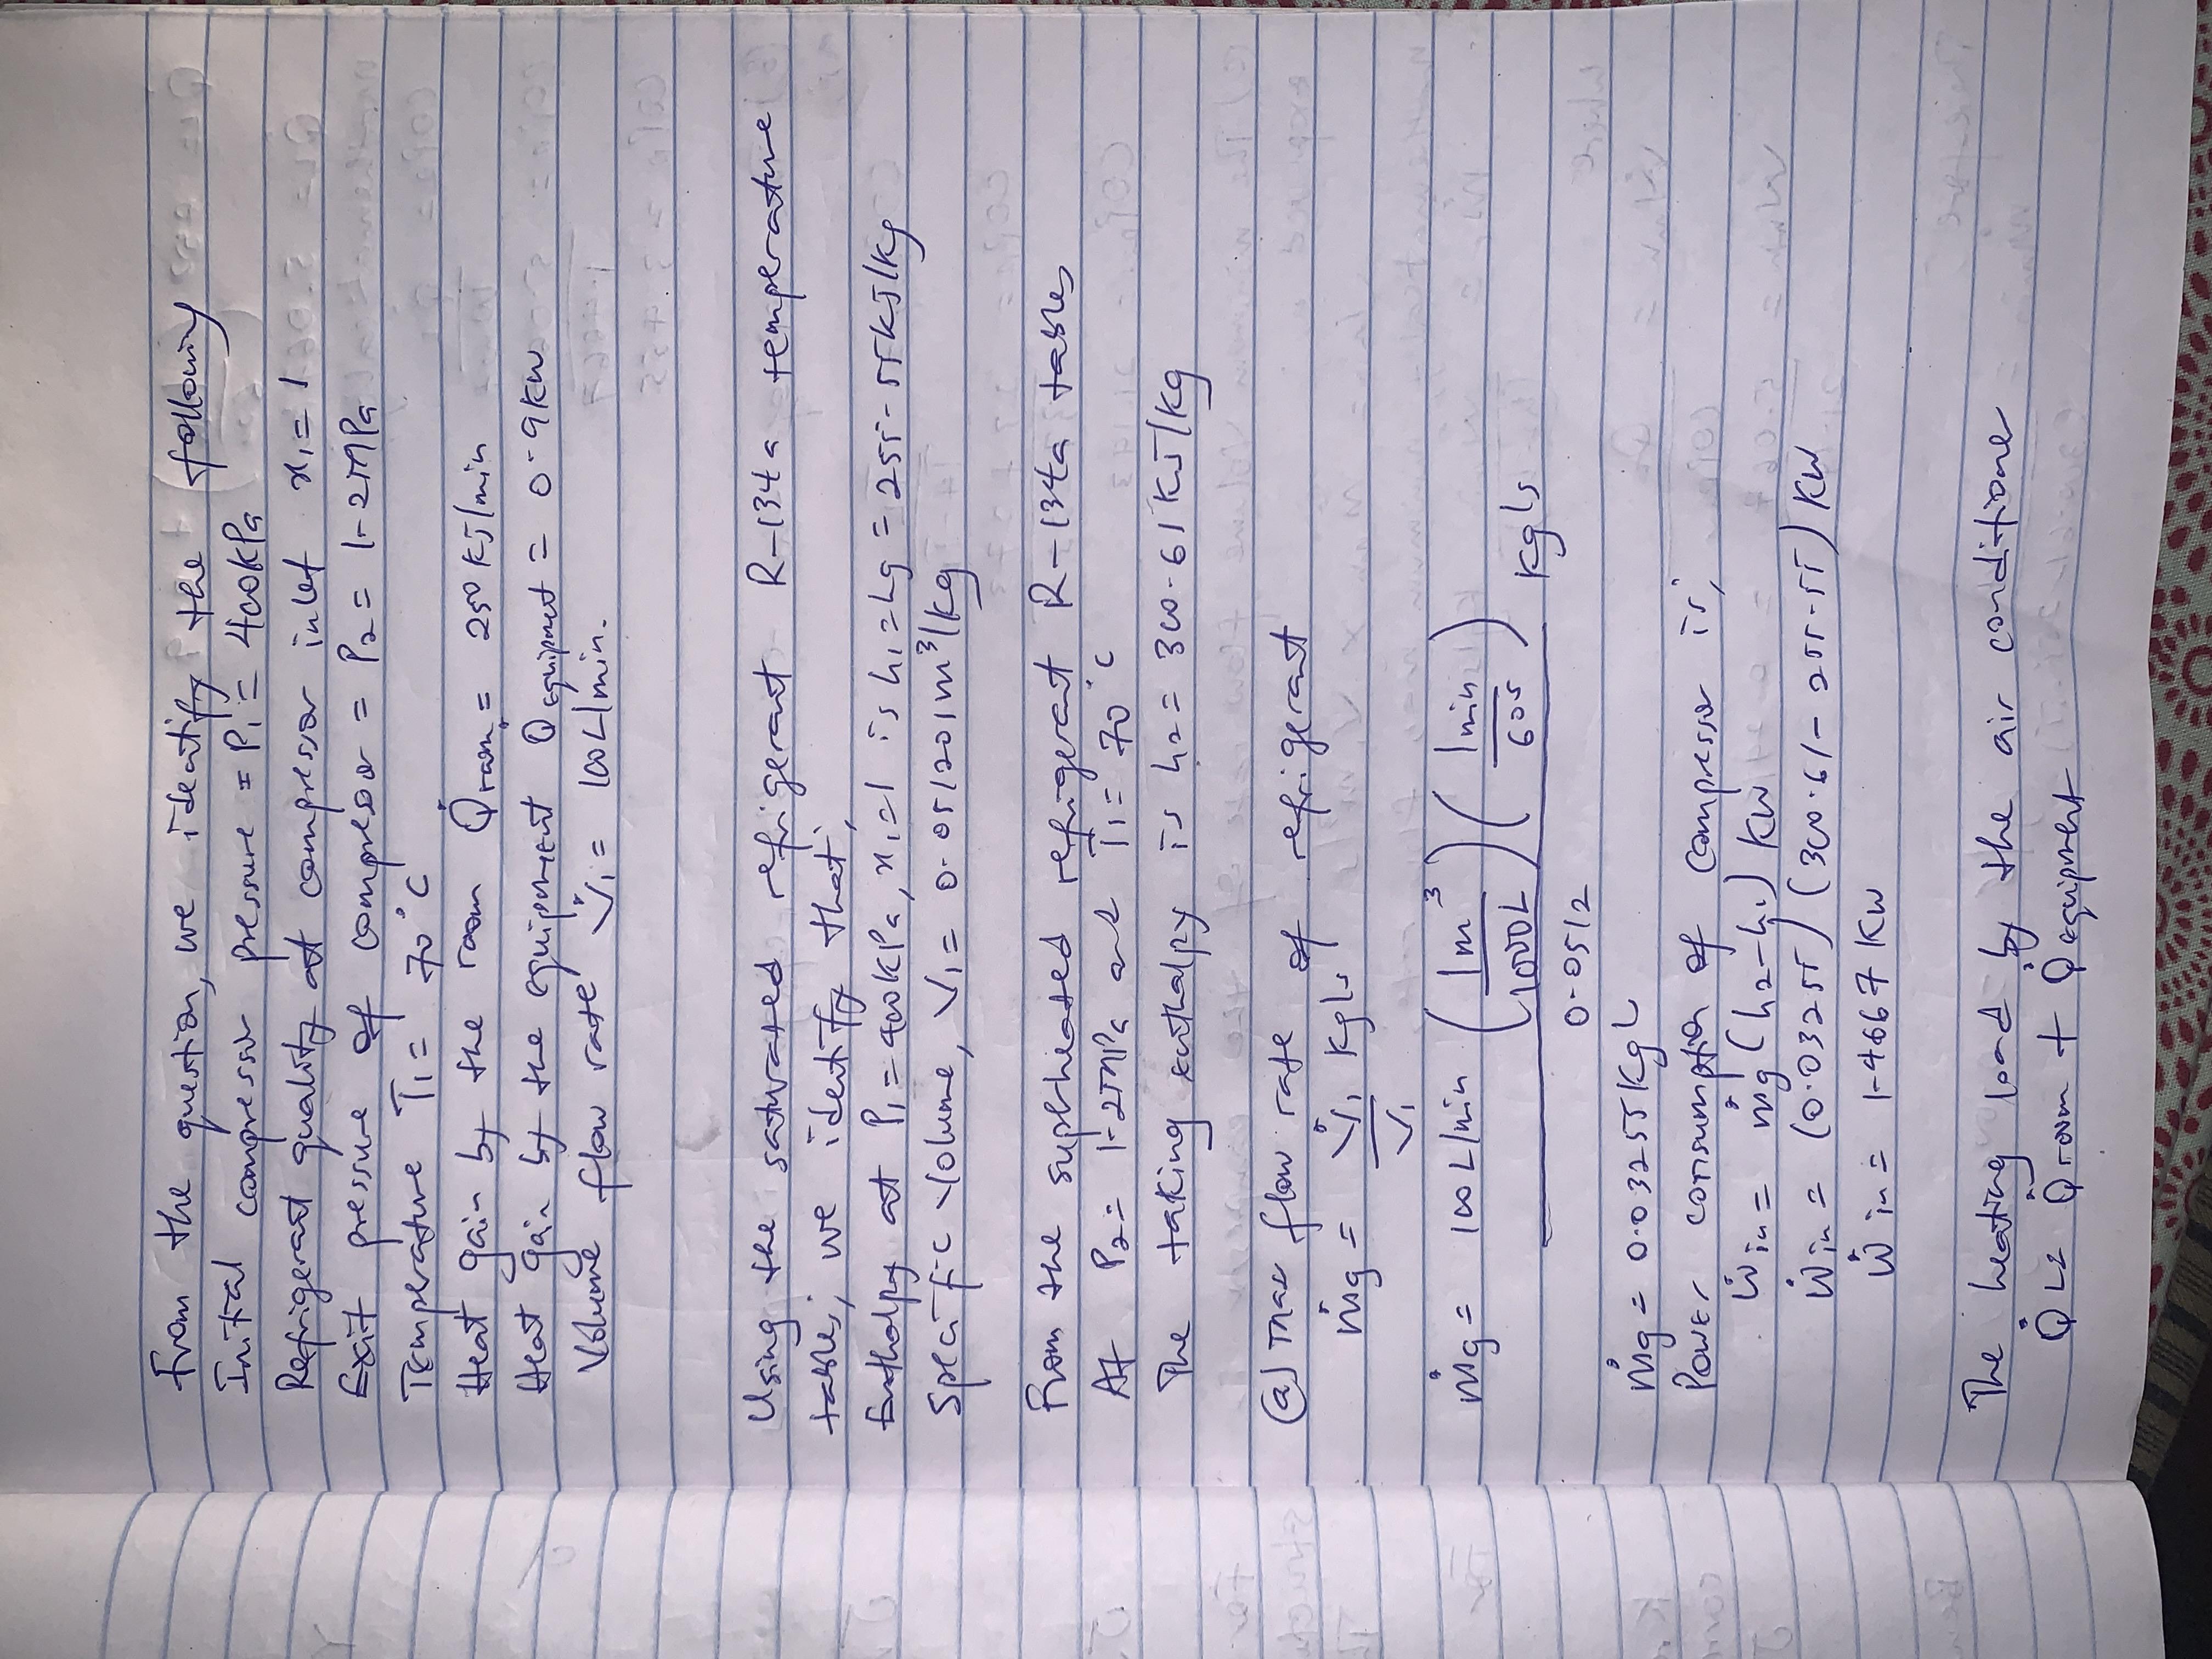 From the question, we identify the following
Initial compressor pressure = P₁ = 400kPa
Refrigerant quality at compressor inlet x₁ = 1
Exit pressure of compressor = P₂ = 1.2MPa
Temperature T₁ = 70°C
Heat gain by the room Q̇room = 250 kJ/min
Heat gain by the equipment Q̇equipment = 0.9kW
Volume flow rate V̇₁ = 100L/min.
Using the saturated refrigerant R-134a temperature
tables, we identify that,
Enthalpy at P₁ = 400kPa, x₁=1 is h₁=hg = 255.55kJ/kg
Specific volume, V₁ = 0.051201m³/kg
From the supheated refrigerant R-134a tables
At P₂ = 1.2MPa and T₁ = 70°C
The taking enthalpy is h₂ = 300.61kJ/kg
(a) Mass flow rate of refrigerant
ṁg = V̇₁/V₁ kg/s
ṁg = 100L/min (1m³/1000L)(1min/60s) / 0.0512 kg/s
ṁg = 0.03255kgL
Power consumption of compressor is,
Ẇin = ṁg (h₂-h₁) kW
Ẇin = (0.03255)(300.61-255.55)kW
Ẇin = 1.4667kW
The heating load by the air conditioner
Q̇L = Q̇room + Q̇equipment